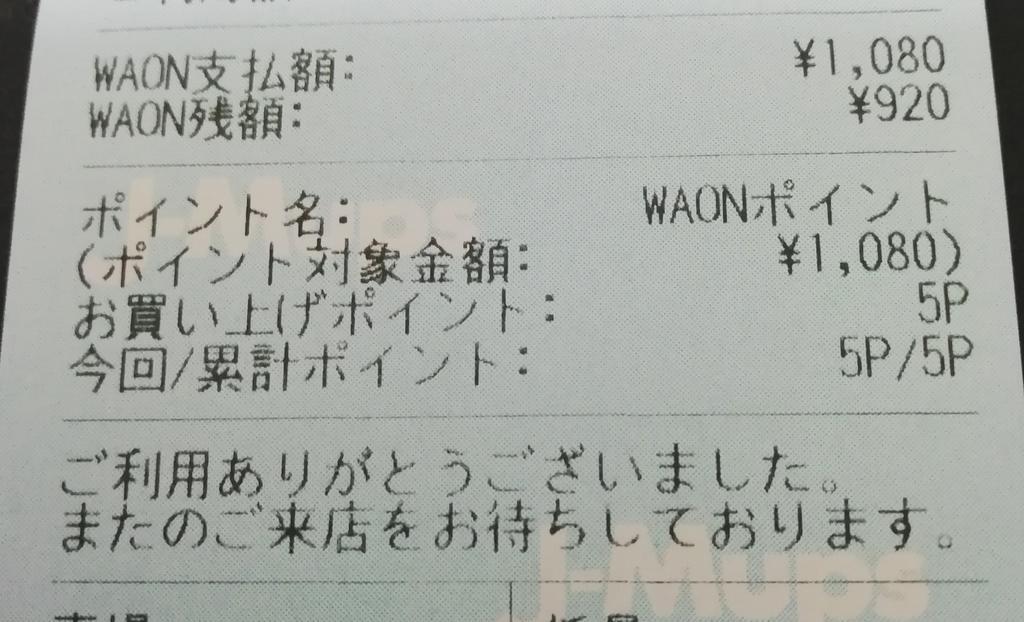 WAON支払額: ¥1,080
WAON残額: ¥920
ポイント名: WAONポイント
(ポイント対象金額: ¥1,080)
お買い上げポイント: 5P
今回/累計ポイント: 5P/5P
ご利用ありがとうございました。
またのご来店をお待ちしております。
J-Mups
J-Mups